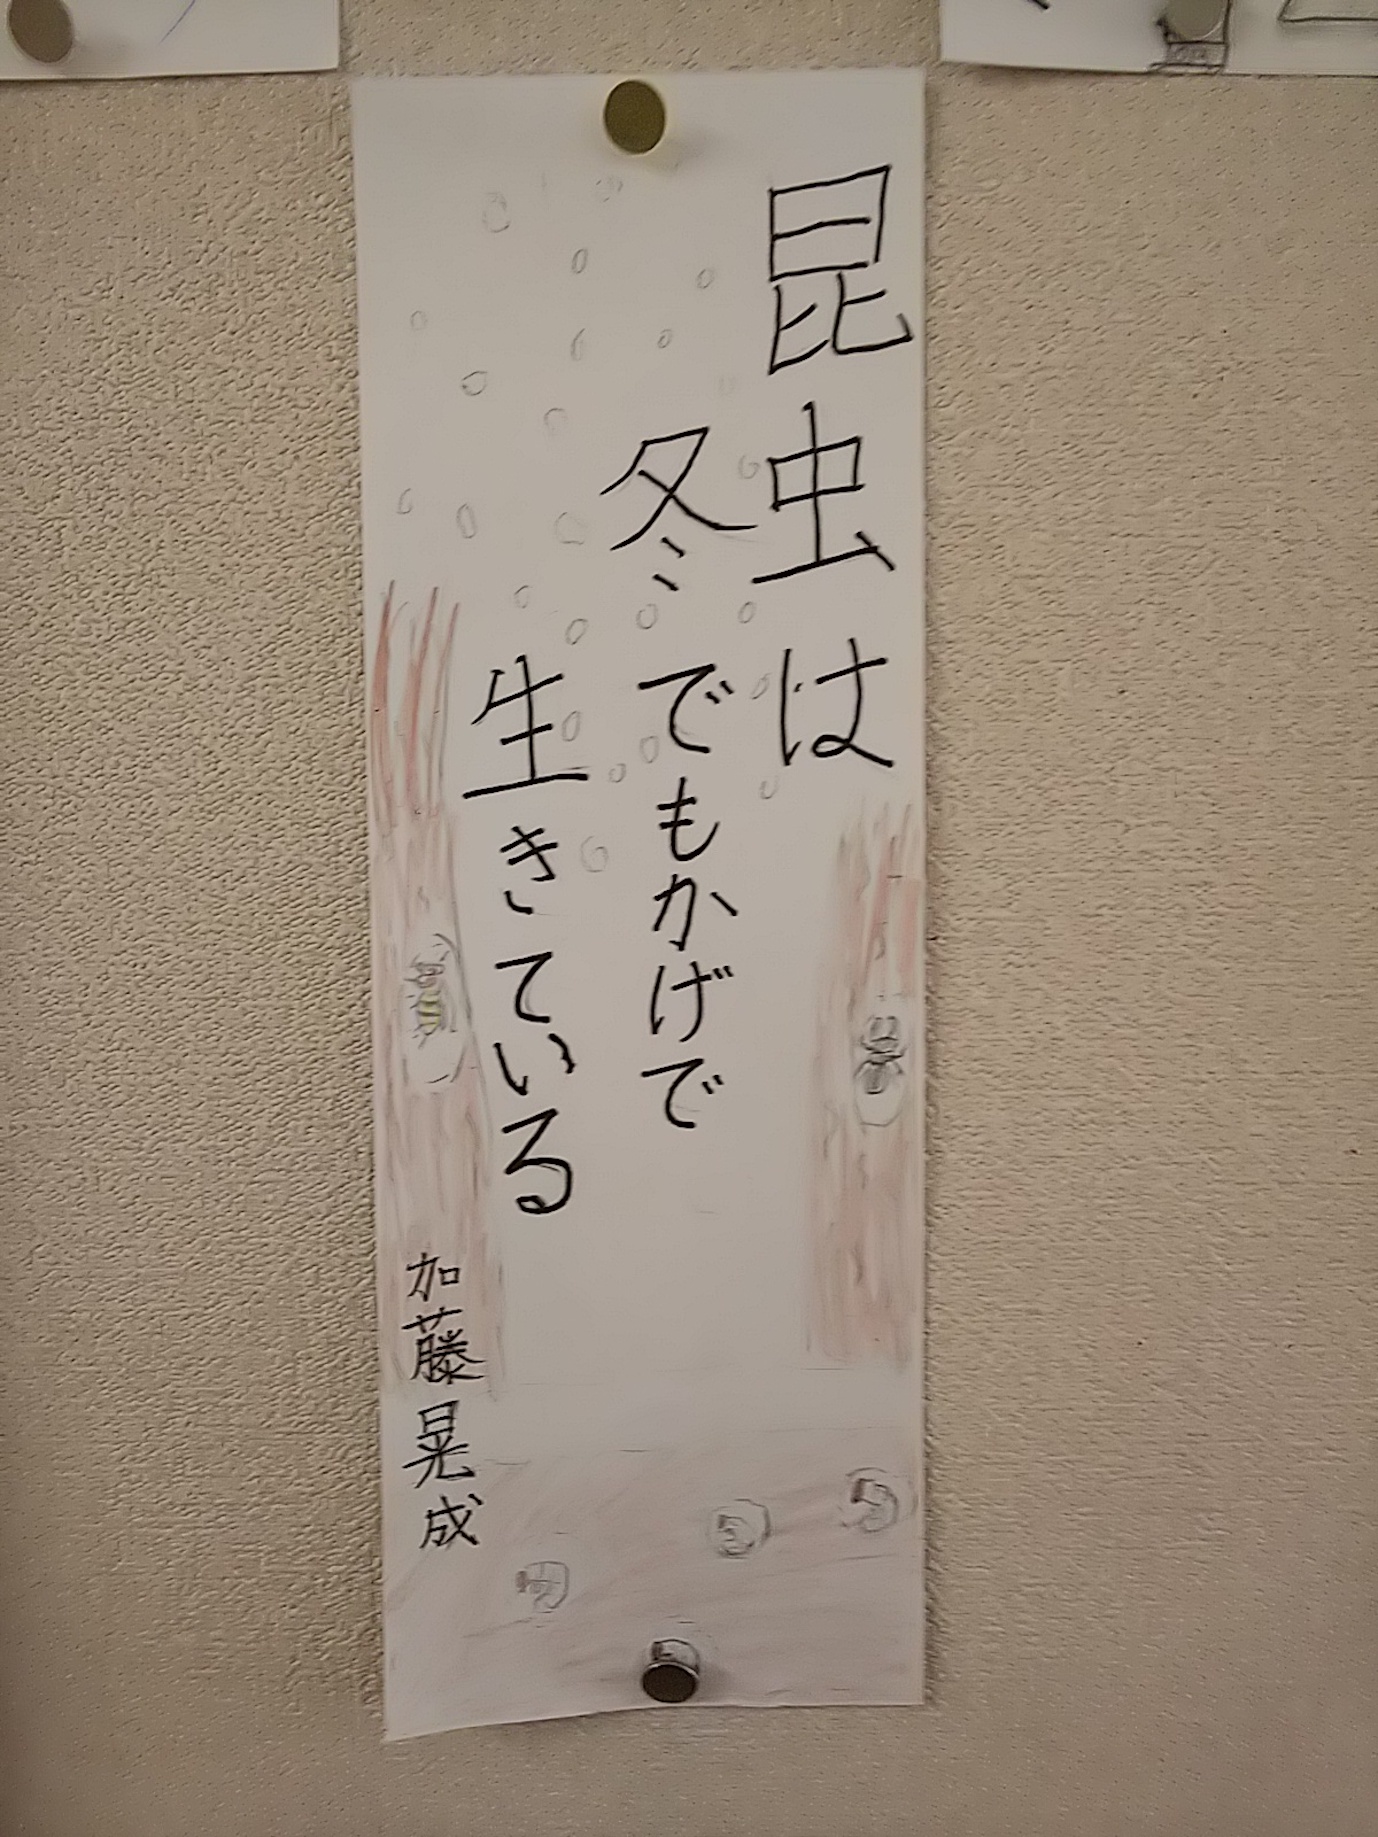 昆虫は
冬でもかげで
生きている
加藤晃成